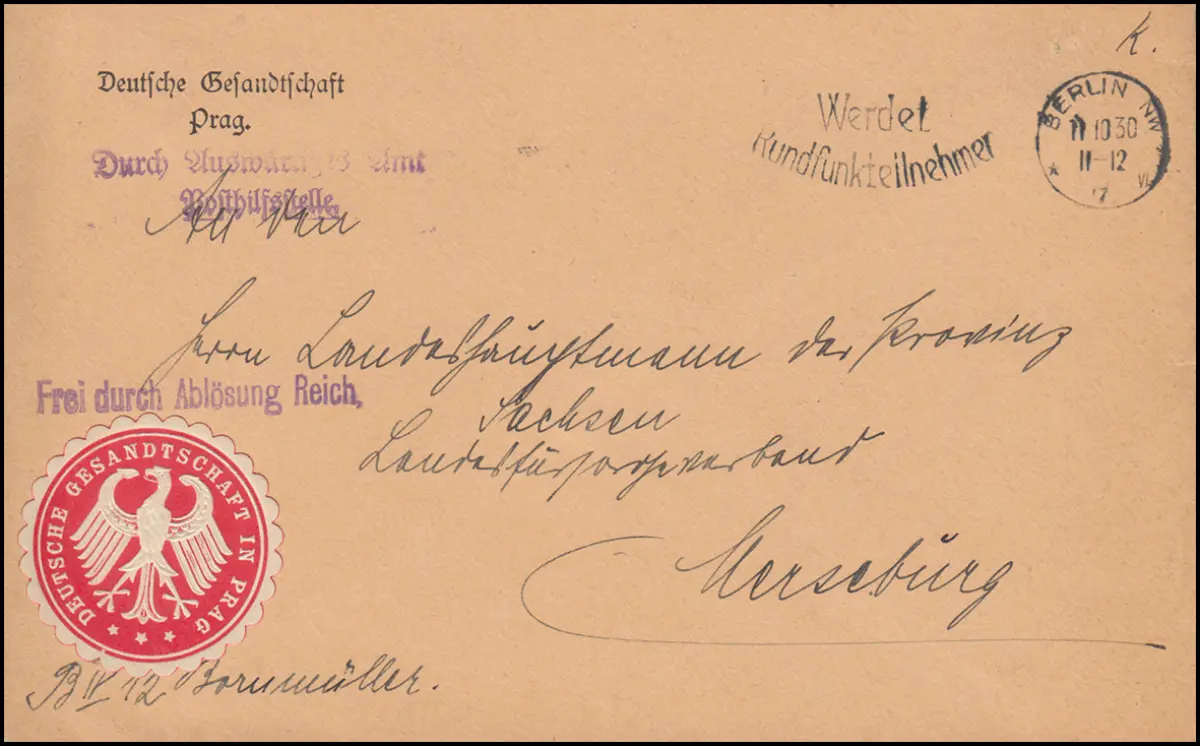 K.
Deutsche Gesandtschaft
Prag.
Durch Auswärtiges Amt
Posthilfsstelle
An den
Werdet
Rundfunkteilnehmer
BERLIN NW
11 10 30
11-12
Herrn Landeshauptmann der Provinz
Sachsen
Landesfürsorgeverband
Merseburg
Frei durch Ablösung Reich,
DEUTSCHE GESANDTSCHAFT IN PRAG
B IV 12 Bornmüller.